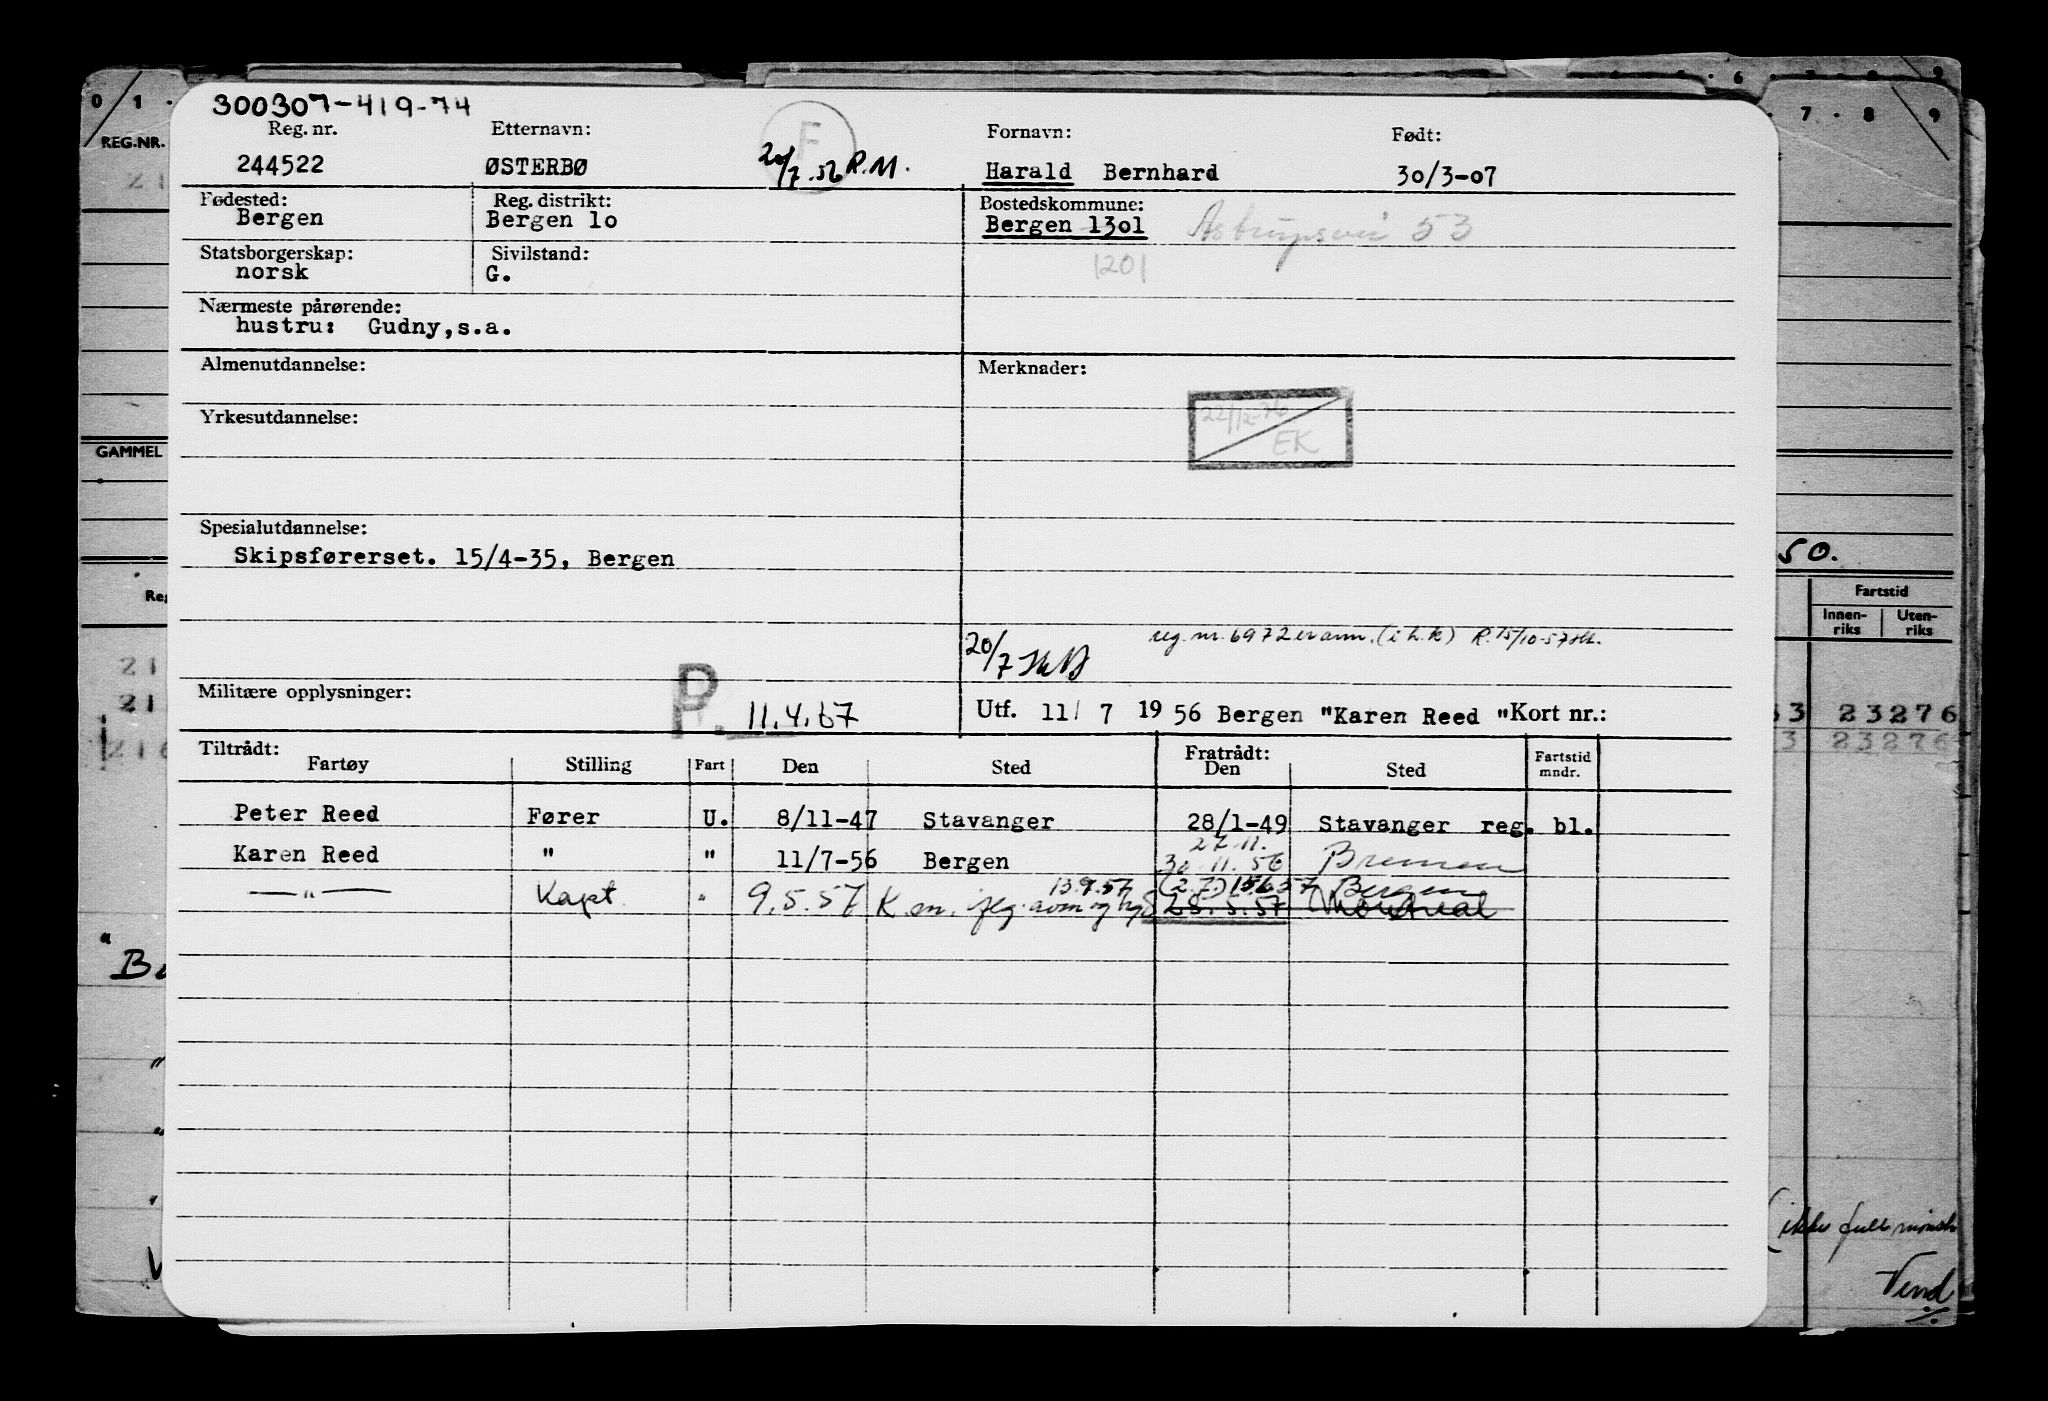 300307-419-74
Reg. nr. Etternavn: F Fornavn: Født:
244522 ØSTERBØ 20/7.56 R.M. Harald Bernhard 30/3-07
Fødested: Reg. distrikt: Bostedskommune:
Bergen Bergen 1o Bergen 13o1 Astrupsvei 53
Statsborgerskap: Sivilstand:
norsk G. 1201
Nærmeste pårørende:
hustru: Gudny,s.a.
Almenutdannelse: Merknader:
22/12-76
Yrkesutdannelse:
EK
Spesialutdannelse:
Skipsførerset. 15/4-35, Bergen
reg. nr. 6972 er ann. (i h.k) R. 15/10-57
20/7
Militære opplysninger: P. 11.4.67 Utf. 11/ 7 19 56 Bergen "Karen Reed "Kort nr.:
Tiltrådt: Fratrådt:
Fartøy Stilling Fart Den Sted Den Sted Fartstid mndr.
Peter Reed Fører U. 8/11-47 Stavanger 28/1-49 Stavanger reg. bl.
27.11.
Karen Reed " " 11/7-56 Bergen 30.11.56 Bremen
13.9.57 (2.7.) 15.6.57 Bergen
—"— Kapt. " 9.5.57 K 28.5.57 Montreal
0 1 .
REG.NR.
21
GAMMEL
Reg
21
21
216
"
"
"
"
6 . 7 . 8 . 9
. 7 . 8 . 9
50.
Fartstid
Innen-riks Uten-riks
3 23276
3 23276
(ikke fulle
Vend